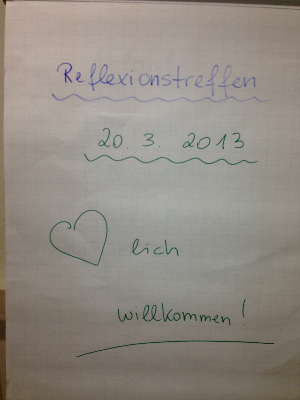 Reflexionstreffen
20. 3. 2013
lich
willkommen!